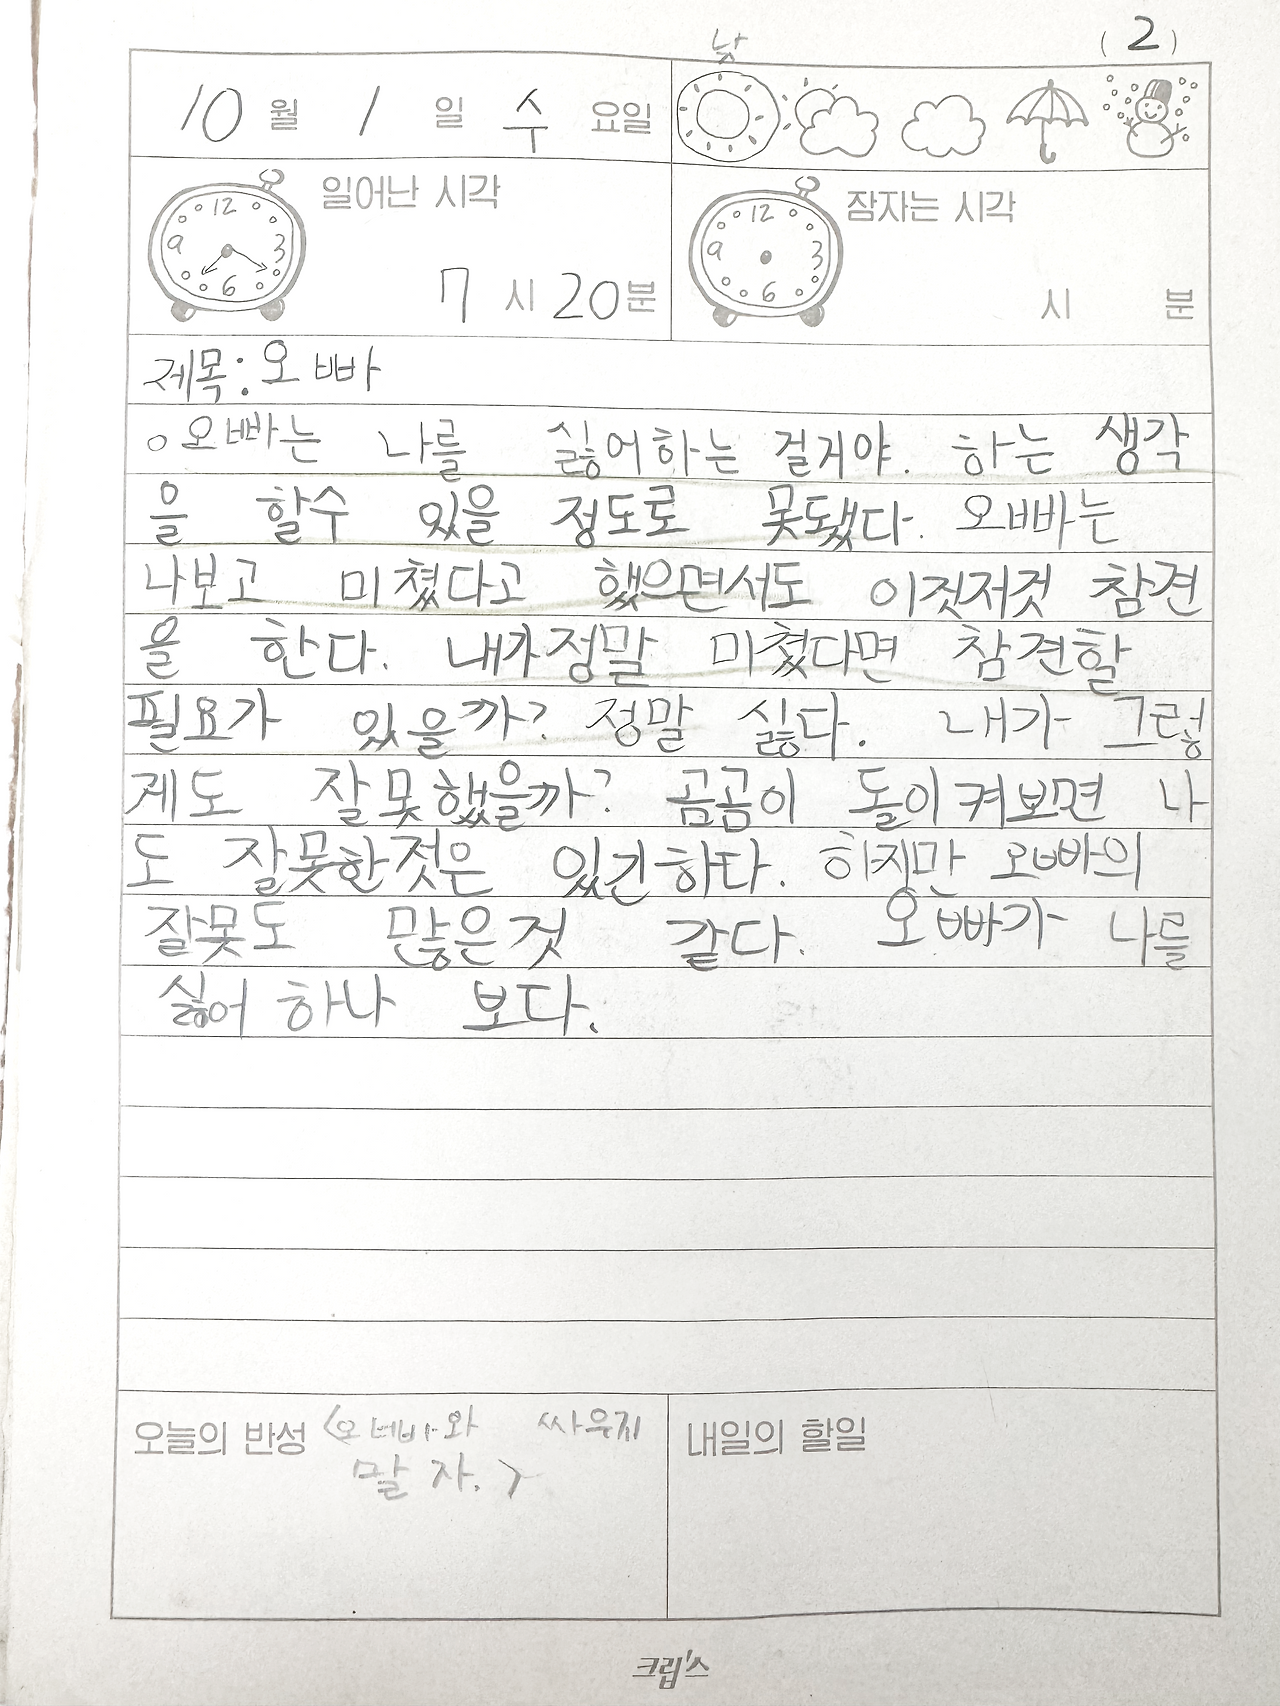 낮
( 2 )
10 월 1 일 수 요일
일어난 시각
12
9 3
6
7 시 20 분
잠자는 시각
12
9 3
6
시 분
제목: 오빠
오빠는 나를 싫어하는 걸거야. 하는 생각
을 할수 있을 정도로 못됐다. 오빠는
나보고 미쳤다고 했으면서도 이것저것 참견
을 한다. 내가정말 미쳤다면 참견할
필요가 있을까? 정말 싫다. 내가 그렇
게도 잘못했을까? 곰곰이 돌이켜보면 나
도 잘못한것은 있긴하다. 하지만 오빠의
잘못도 많은것 같다. 오빠가 나를
싫어하나 보다.
오늘의 반성 <오빠와 싸우지
말자.>
내일의 할일
크립스